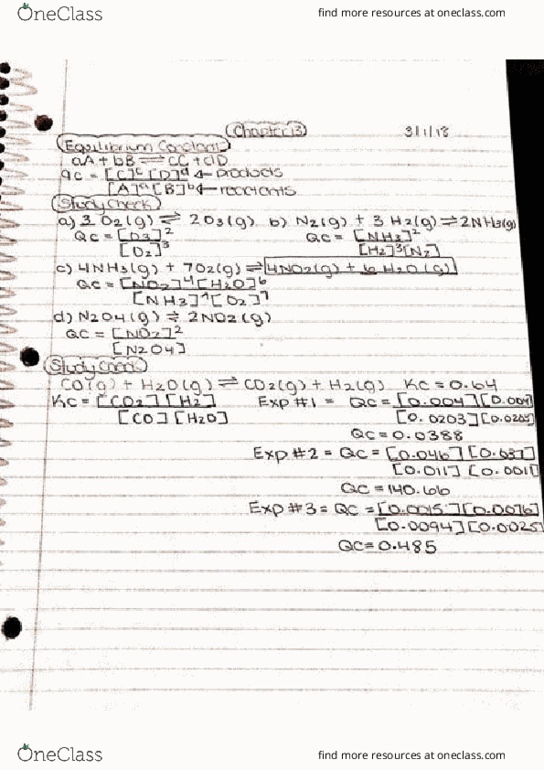 OneClass
find more resources at oneclass.com
Chapter 13
3/1/18
Equilibrium Constant
aA + bB ⇌ cC + dD
Qc = [C]^c [D]^d ← products
[A]^a [B]^b ← reactants
Study Check
a) 3 O2(g) ⇌ 2O3(g) b) N2(g) + 3 H2(g) ⇌ 2NH3(g)
Qc = [O3]^2 Qc = [NH3]^2
[O2]^3 [H2]^3[N2]
c) 4NH3(g) + 7O2(g) ⇌ 4NO2(g) + 6 H2O(g)
Qc = [NO2]^4[H2O]^6
[NH3]^4[O2]^7
d) N2O4(g) ⇌ 2NO2(g)
Qc = [NO2]^2
[N2O4]
Study Check
CO(g) + H2O(g) ⇌ CO2(g) + H2(g) Kc = 0.64
Kc = [CO2][H2] Exp #1 = Qc = [0.004][0.004]
[CO][H2O] [0.0203][0.0203]
Qc = 0.0388
Exp #2 = Qc = [0.046][0.037]
[0.011][0.0011]
Qc = 140.66
Exp #3 = Qc = [0.0015][0.0076]
[0.0094][0.0025]
Qc = 0.485
OneClass
find more resources at oneclass.com